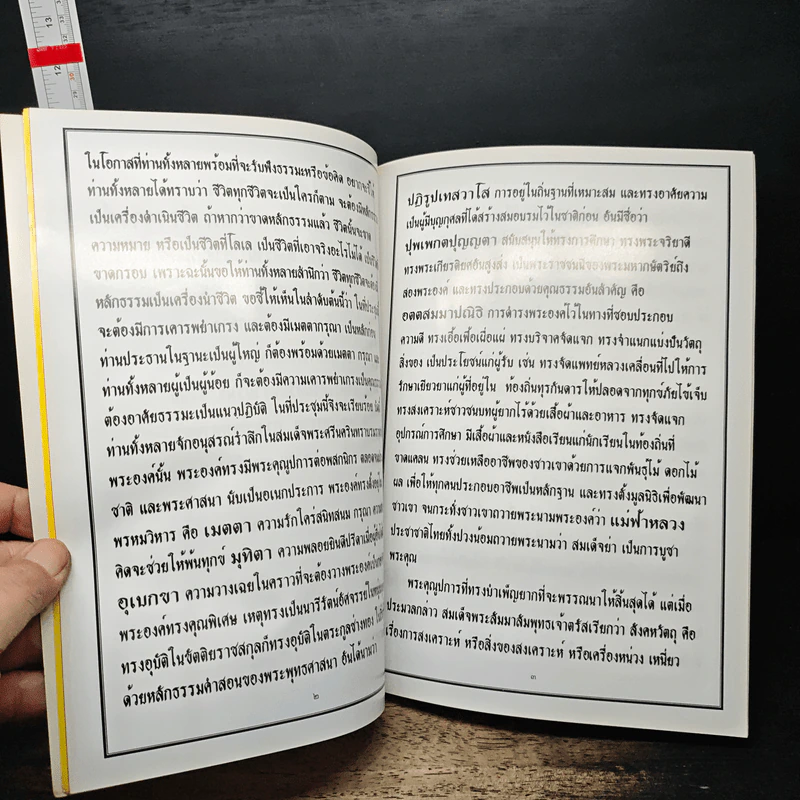 ในโอกาสที่ท่านทั้งหลายพร้อมที่จะรับฟังธรรมะหรือข้อคิด
ท่านทั้งหลายได้ทราบว่า ชีวิตทุกชีวิตจะเป็นใครก็ตาม จะต้องมีหลักธรรม
เป็นเครื่องดำเนินชีวิต ถ้าหากว่าขาดหลักธรรมแล้ว ชีวิตนั้นจะขาด
ความหมาย หรือเป็นชีวิตที่โลเล เป็นชีวิตที่เอาจริงอะไรไม่ได้
ขาดกรอบ เพราะฉะนั้นขอให้ท่านทั้งหลายสำนึกว่า ชีวิตทุกชีวิตจะต้อง
หลักธรรมเป็นเครื่องนำชีวิต ขอชี้ให้เห็นในลำดับต้นนี้ว่า ในที่ประชุมนี้
จะต้องมีการเคารพยำเกรง และต้องมีเมตตากรุณา เป็นหลักก่อน
ท่านประธานในฐานะเป็นผู้ใหญ่ ก็ต้องพร้อมด้วยเมตตา กรุณา และ
ท่านทั้งหลายผู้เป็นผู้น้อย ก็จะต้องมีความเคารพยำเกรงเป็นคุณธรรม
ต้องอาศัยธรรมะเป็นแนวปฏิบัติ ในที่ประชุมนี้จึงจะเรียบร้อย
ท่านทั้งหลายจักอนุสรณ์รำลึกในสมเด็จพระศรีนครินทราบรมราช
พระองค์นั้น พระองค์ทรงมีพระคุณูปการต่อพสกนิกร ตลอดจน
ชาติ และพระศาสนา นับเป็นอเนกประการ พระองค์ทรงตั้งอยู่ใน
พรหมวิหาร คือ เมตตา ความรักใคร่สนิทสนม กรุณา ความ
คิดจะช่วยให้พ้นทุกข์ มุทิตา ความพลอยยินดีปรีดาเมื่อผู้อื่น
อุเบกขา ความวางเฉยในคราวที่จะต้องวางพระองค์เป็น
พระองค์ทรงคุณพิเศษ เหตุทรงเป็นนารีรัตน์อัศจรรย์ในพิภพ
ทรงอุบัติในขัตติยราชสกุลก็ทรงอุบัติในตระกูลช่างทอง
ด้วยหลักธรรมคำสอนของพระพุทธศาสนา อันได้นามว่า
๒
ปฏิรูปเทสวาโส การอยู่ในถิ่นฐานที่เหมาะสม และทรงอาศัยความ
เป็นผู้มีบุญกุศลที่ได้สร้างสมอบรมไว้ในชาติก่อน อันมีชื่อว่า
ปุพเพกตปุญญตา สนับสนุนให้ทรงการศึกษา ทรงพระจริยาดี
ทรงพระเกียรติยศอันสูงส่ง เป็นพระราชชนนีของพระมหากษัตริย์ถึง
สองพระองค์ และทรงประกอบด้วยคุณธรรมอันสำคัญ คือ
อตตสมมาปณิธิ การดำรงพระองค์ไว้ในทางที่ชอบประกอบ
ความดี ทรงเอื้อเฟื้อเผื่อแผ่ ทรงบริจาคจัดแจก ทรงจำแนกแบ่งปันวัตถุ
สิ่งของ เป็นประโยชน์แก่ผู้รับ เช่น ทรงจัดแพทย์หลวงเคลื่อนที่ไปให้การ
รักษาเยียวยาแก่ผู้ที่อยู่ใน ท้องถิ่นทุรกันดารให้ปลอดจากทุกข์ภัยไข้เจ็บ
ทรงสงเคราะห์ชาวชนบทผู้ยากไร้ด้วยเสื้อผ้าและอาหาร ทรงจัดแจก
อุปกรณ์การศึกษา มีเสื้อผ้าและหนังสือเรียนแก่นักเรียนในท้องถิ่นที่
ขาดแคลน ทรงช่วยเหลืออาชีพของชาวเขาด้วยการแจกพันธุ์ไม้ ดอกไม้
ผล เพื่อให้ทุกคนประกอบอาชีพเป็นหลักฐาน และทรงตั้งมูลนิธิเพื่อพัฒนา
ชาวเขา จนกระทั่งชาวเขาถวายพระนามพระองค์ว่า แม่ฟ้าหลวง
ประชาชาติไทยทั้งปวงน้อมถวายพระนามว่า สมเด็จย่า เป็นการบูชา
พระคุณ
พระคุณูปการที่ทรงบำเพ็ญยากที่จะพรรณนาให้สิ้นสุดได้ แต่เมื่อ
ประมวลกล่าว สมเด็จพระสัมมาสัมพุทธเจ้าตรัสเรียกว่า สังคหวัตถุ คือ
เรื่องการสงเคราะห์ หรือสิ่งของสงเคราะห์ หรือเครื่องหน่วง เหนี่ยว
๓